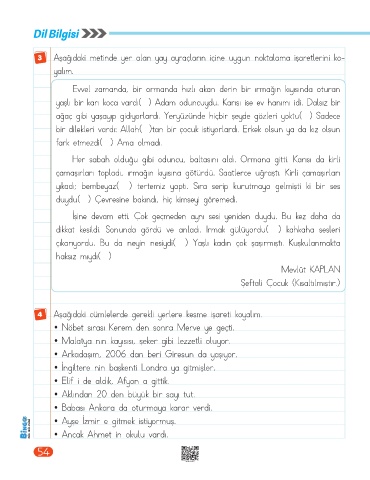 Dil Bilgisi
3 Aşağıdaki metinde yer alan yay ayraçların içine uygun noktalama işaretlerini ko-
yalım.
Evvel zamanda, bir ormanda hızlı akan derin bir ırmağın kıyısında oturan
yaşlı bir karı koca vardı( ) Adam oduncuydu. Karısı ise ev hanımı idi. Dalsız bir
ağaç gibi yaşayıp gidiyorlardı. Yeryüzünde hiçbir şeyde gözleri yoktu( ) Sadece
bir dilekleri vardı: Allah( )tan bir çocuk istiyorlardı. Erkek olsun ya da kız olsun
fark etmezdi( ) Ama olmadı.
Her sabah olduğu gibi oduncu, baltasını aldı. Ormana gitti. Karısı da kirli
çamaşırları topladı, ırmağın kıyısına götürdü. Saatlerce uğraştı. Kirli çamaşırları
yıkadı; bembeyaz( ) tertemiz yaptı. Sıra serip kurutmaya gelmişti ki bir ses
duydu( ) Çevresine bakındı, hiç kimseyi göremedi.
İşine devam etti. Çok geçmeden aynı sesi yeniden duydu. Bu kez daha da
dikkat kesildi. Sonunda gördü ve anladı. Irmak gülüyordu( ) kahkaha sesleri
çıkarıyordu. Bu da neyin nesiydi( ) Yaşlı kadın çok şaşırmıştı. Kuşkulanmakta
haksız mıydı( )
Mevlüt KAPLAN
Şeftali Çocuk (Kısaltılmıştır.)
4 Aşağıdaki cümlelerde gerekli yerlere kesme işareti koyalım.
• Nöbet sırası Kerem den sonra Merve ye geçti.
• Malatya nın kayısısı, şeker gibi lezzetli oluyor.
• Arkadaşım, 2006 dan beri Giresun da yaşıyor.
• İngiltere nin başkenti Londra ya gitmişler.
• Elif i de aldık, Afyon a gittik.
• Aklından 20 den büyük bir sayı tut.
• Babası Ankara da oturmaya karar verdi.
• Ayşe İzmir e gitmek istiyormuş.
• Ancak Ahmet in okulu vardı.
Bingo
54